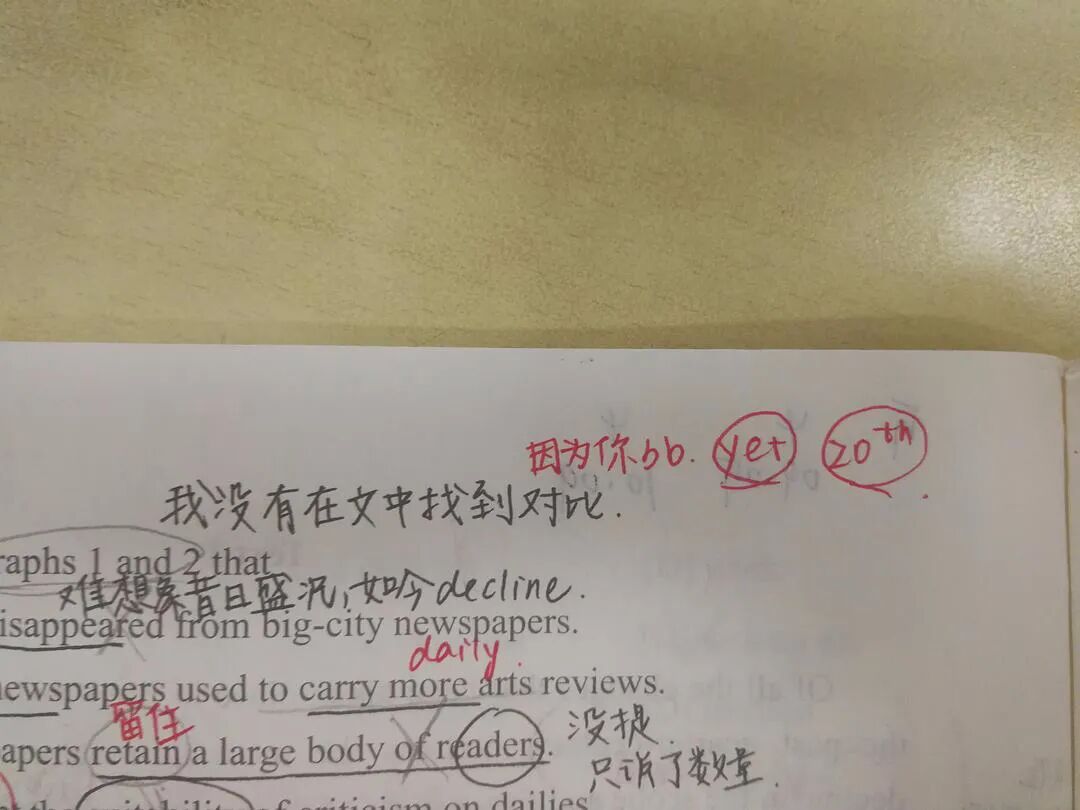 因为你bb. yet 20th.
我没有在文中找到对比.
raphs 1 and 2 that
难想象昔日盛况,如今decline.
isappeared from big-city newspapers.
daily.
newspapers used to carry more arts reviews.
留住
apers retain a large body of readers.
没提.
只说了数量.
of criticism on dailies